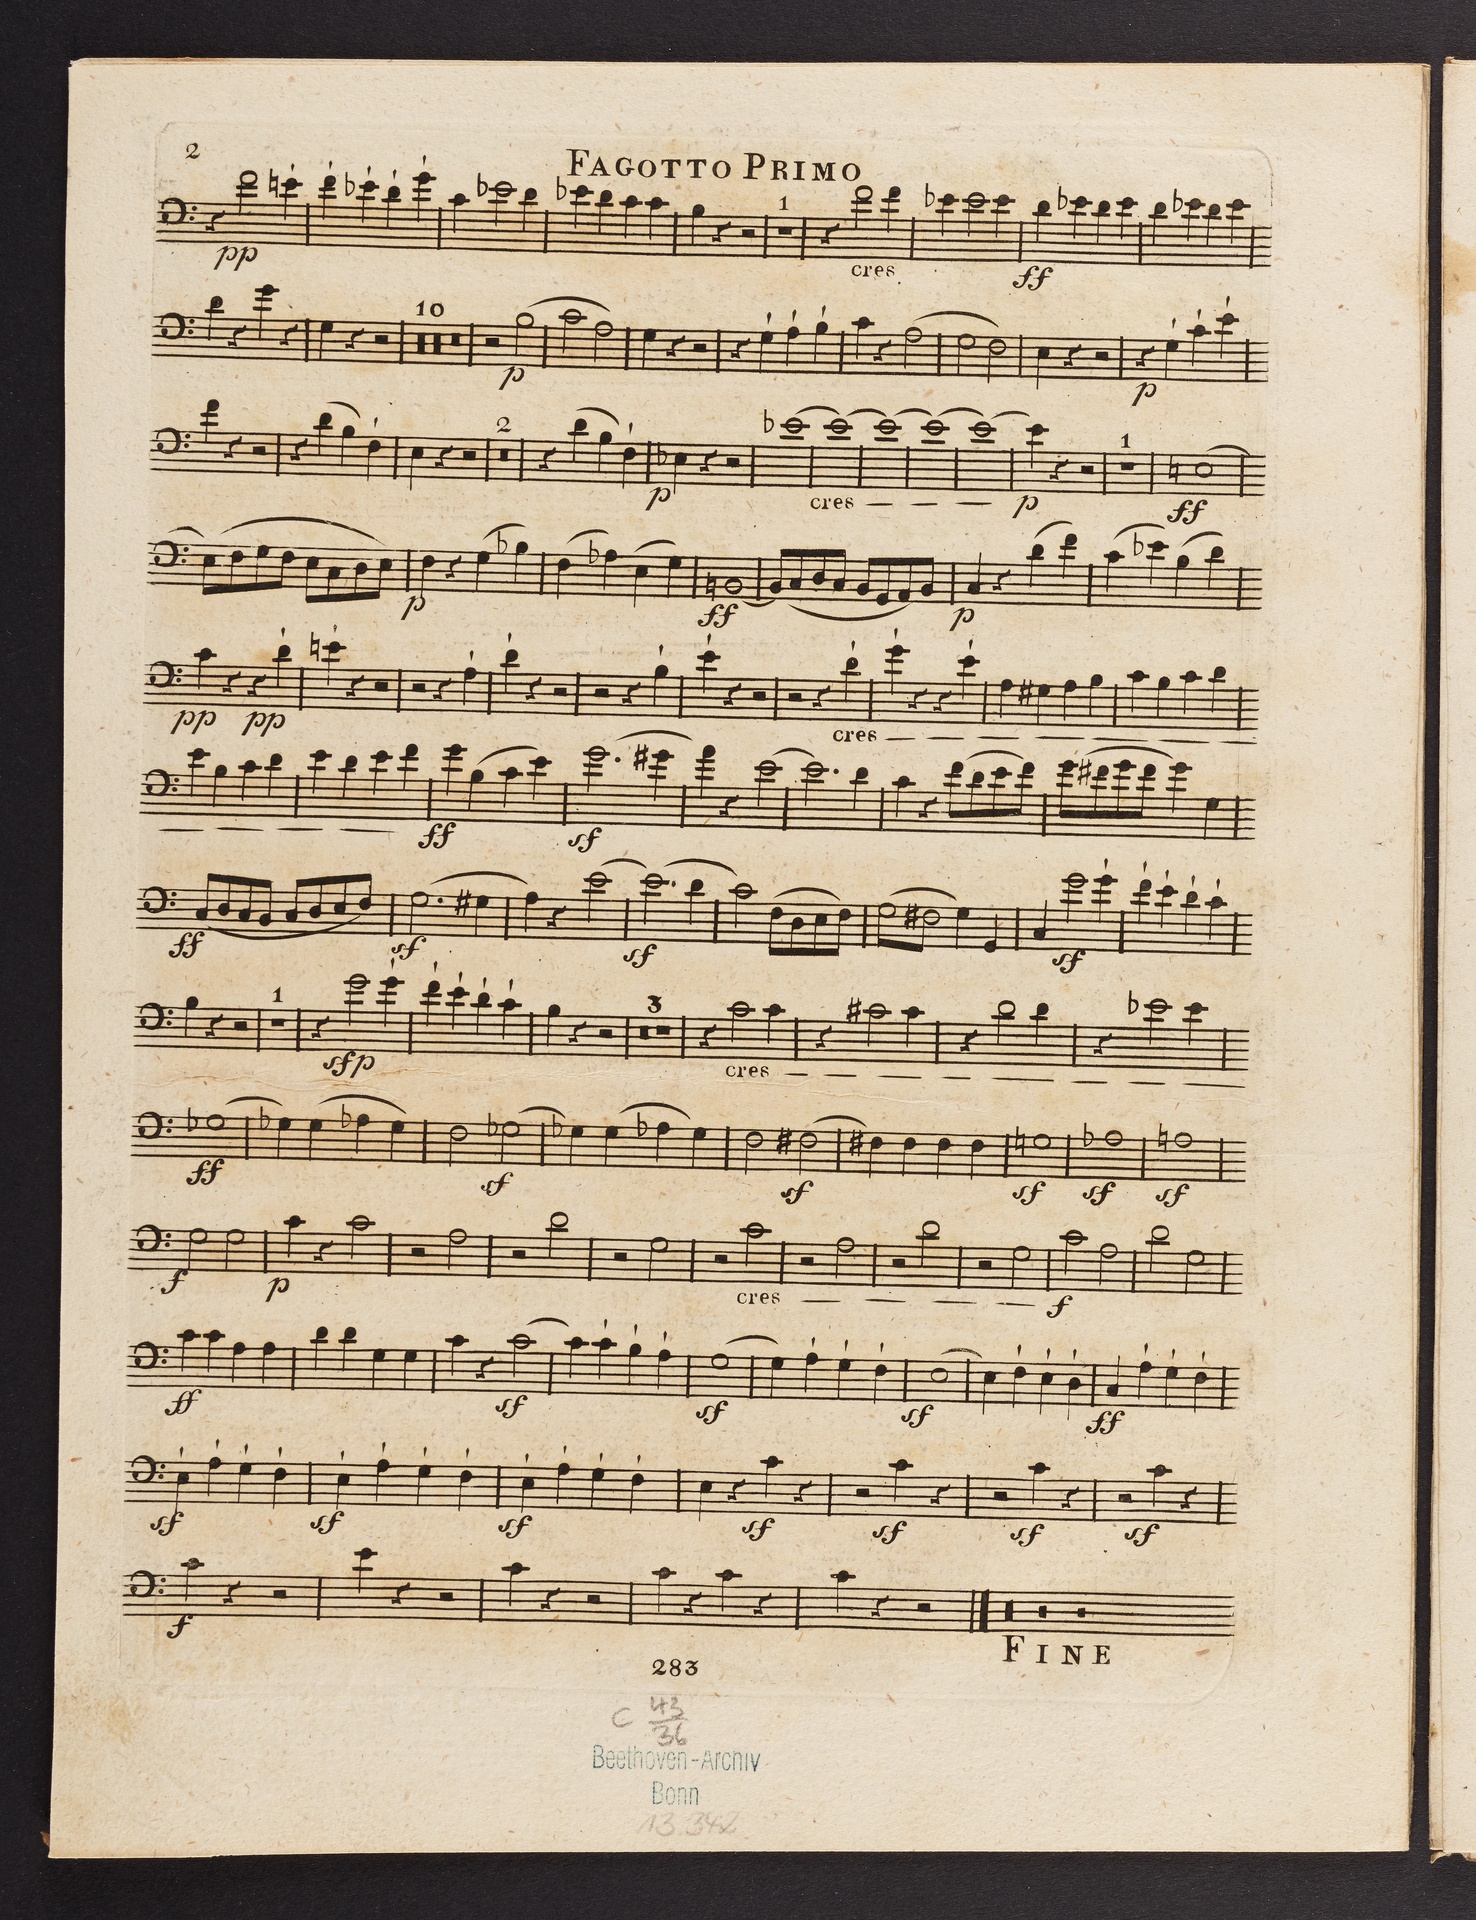 2
FAGOTTO PRIMO
1
pp cres ff
10
p p
2 1
p cres p ff
p ff p
pp pp cres
ff sf
ff sf sf sf
1 3
sfp cres
ff sf sf sf sf sf
f p cres f
ff sf sf sf ff
sf sf sf sf sf sf sf
f
FINE
283
C 43
36
Beethoven-Archiv
Bonn
13.342